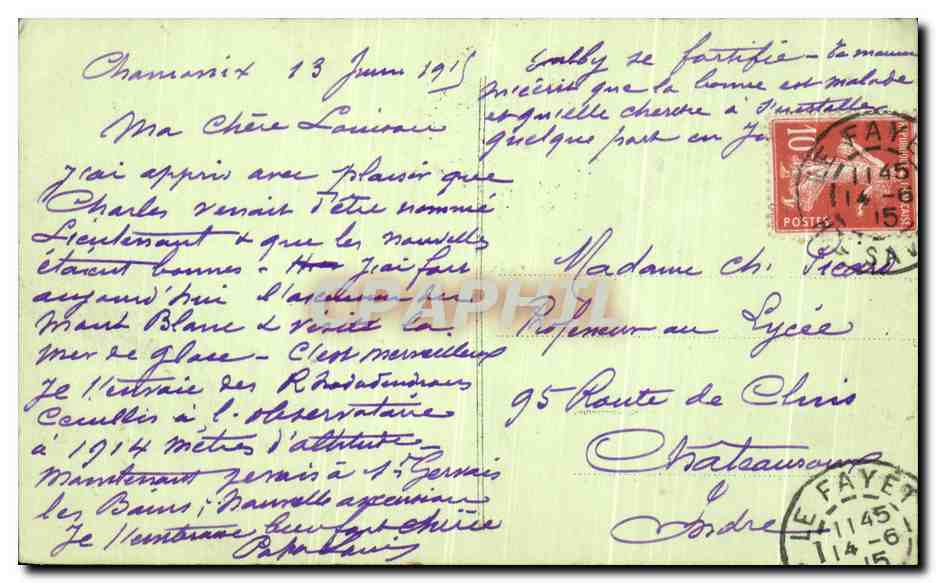 Chamonix 13 Juin 1915
Ma Chère Louison
J'ai appris avec plaisir que
Charles venait d'être nommé
Lieutenant & que les nouvelles
étaient bonnes - J'ai fait
aujourd'hui l'ascension du
Mont Blanc & visité la
mer de glace - C'est merveilleux
Je t'envoie des Rhododendrons
Cueillis à l'observatoire
à 1914 mètres d'altitude -
Maintenant je vais à St Gervais
les Bains, Nouvelle ascension
Je t'embrasse bien fort chérie
Papa Louis
se fortifie - Ta maman
m'écrit que la bonne est malade
et qu'elle cherche à s'installer
quelque part en
Madame Ch. Picard
Professeur au Lycée
95 Route de
Châteauroux
Indre
10
POSTES
LE FAYET
11 45
14 - 6
15
SAV
CPAPHIL
LE FAYET
11 45
14 - 6
15